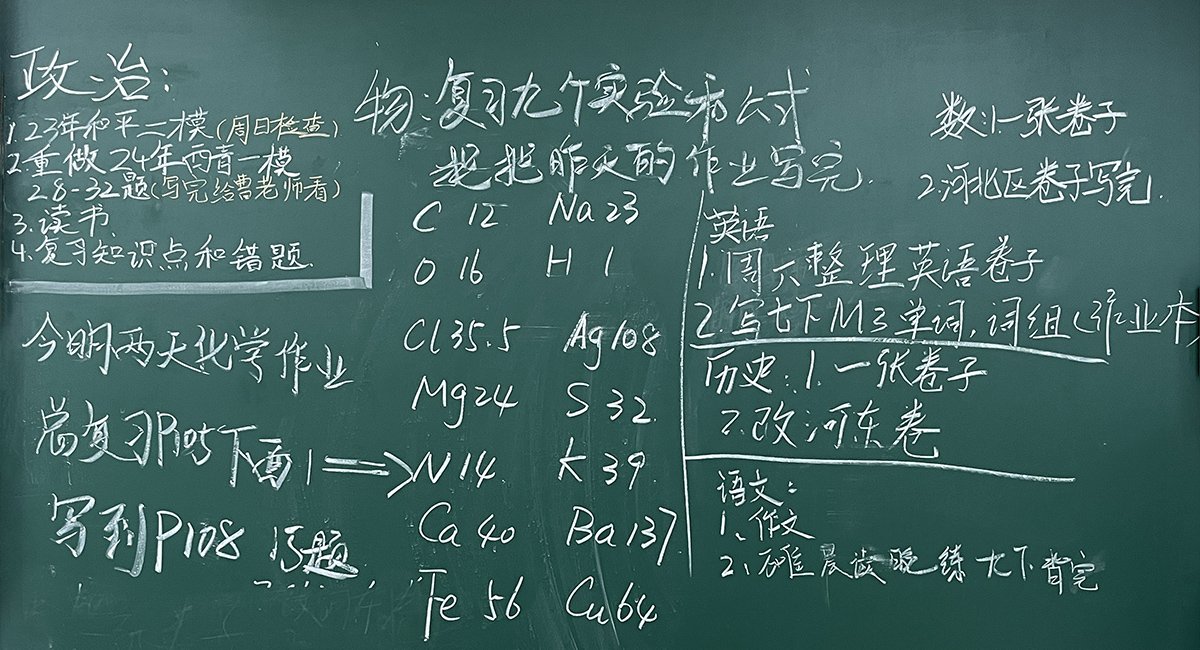 政治：
1.23年和平二模(周日检查)
2.重做24年西青一模
28-32题(写完给曹老师看)
3.读书
4.复习知识点和错题.
今明两天化学作业
总复习P105下面1⟹
写到P108 15题
物：复习九个实验和公式
把昨天的作业写完.
C 12 Na 23
O 16 H 1
Cl 35.5 Ag 108
Mg 24 S 32
N 14 K 39
Ca 40 Ba 137
Fe 56 Cu 64
数：1.一张卷子
2.河北区卷子写完.
英语
1.周六整理英语卷子
2.写七下M3单词,词组(作业本)
历史：1.一张卷子
2.改河东卷
语文：
1、作文
2、晨读晚练九下背完